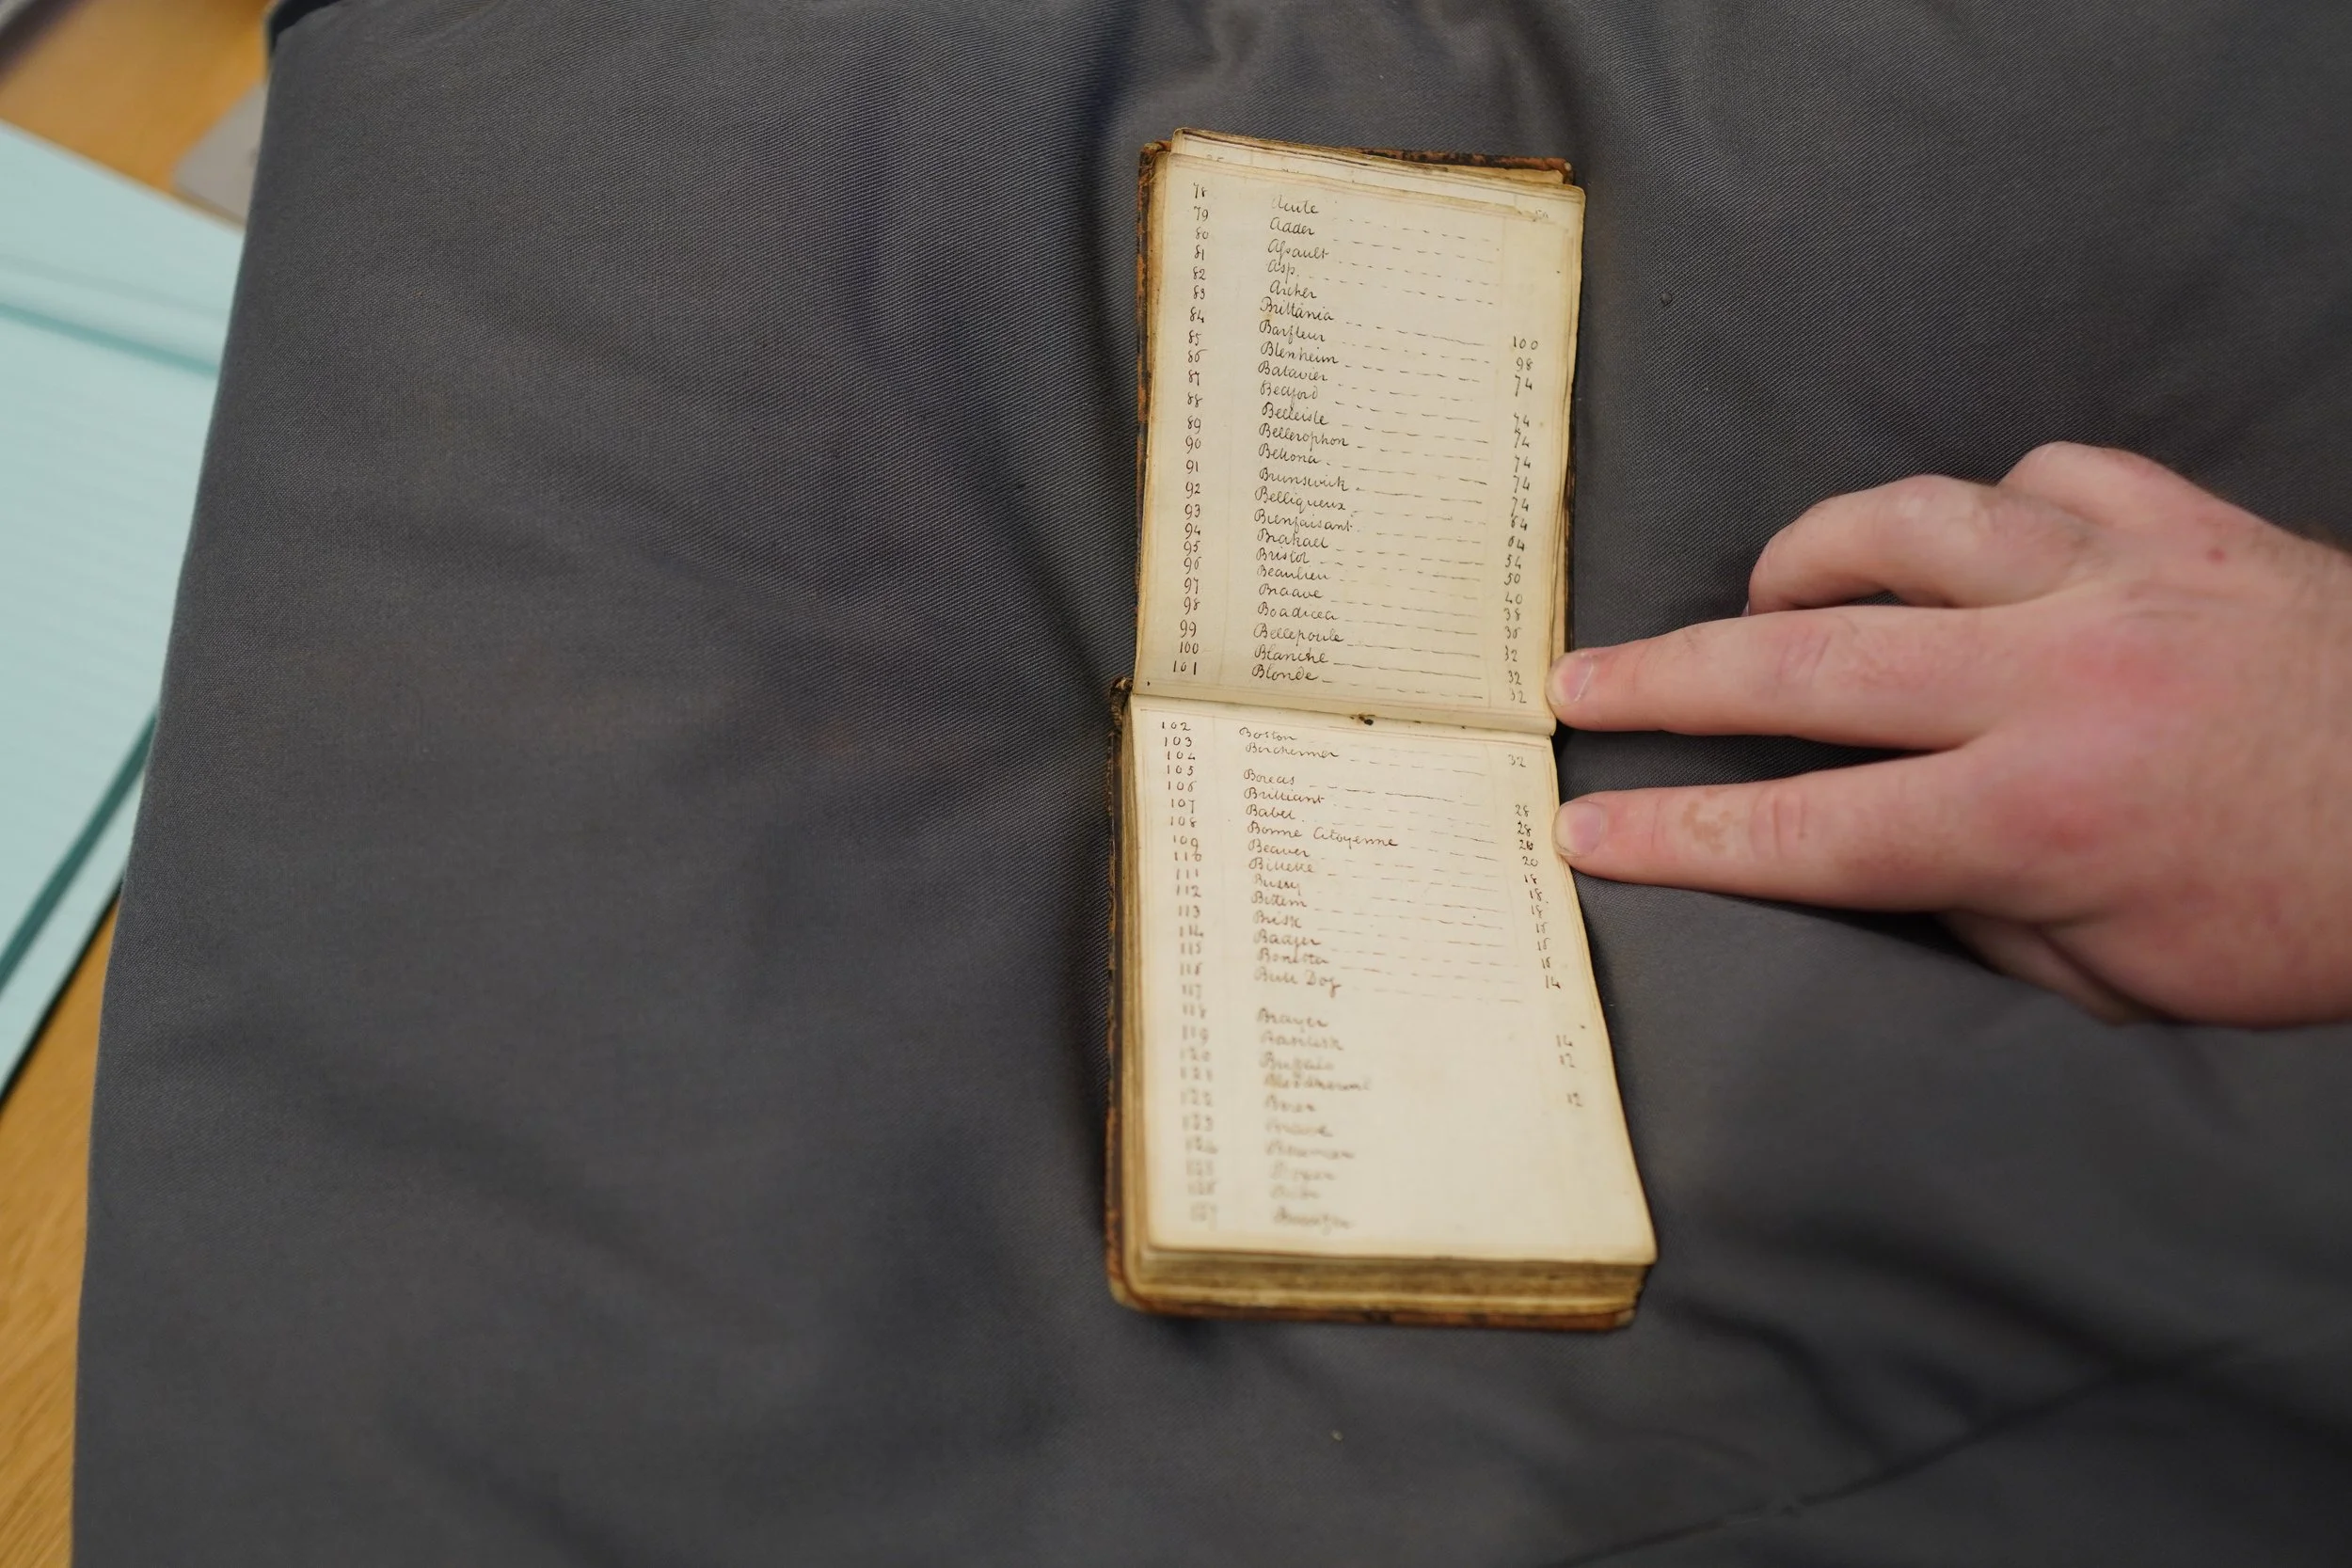 78 Acute
79 Adder
80 Assault
81 Asp
82 Archer
83 Brittania 100
84 Barfleur 98
85 Blenheim 74
86 Batavier
87 Bedford 74
88 Belleisle 74
89 Bellerophon 74
90 Bellona 74
91 Brunswick 74
92 Belliqueux 64
93 Bienfaisant 64
94 Brakael 54
95 Bristol 50
96 Beaulieu 40
97 Braave 38
98 Boadicea 36
99 Bellepoule 32
100 Blanche 32
101 Blonde 32
102 Boston 32
103
104 Boreas 28
105 Brilliant 28
106 Babet 20
107 Bonne Citoyenne 20
108 Beaver 18
109 Billette 18
110 Bussy 18
111 Bittern 16
112 Brisk 16
113 Badger 16
114 Bonetta 14
115 Bull Dog
116
117 14
118 Basilisk 12
119 Buffalo
120 12
121 Boxer
122
123
124
125